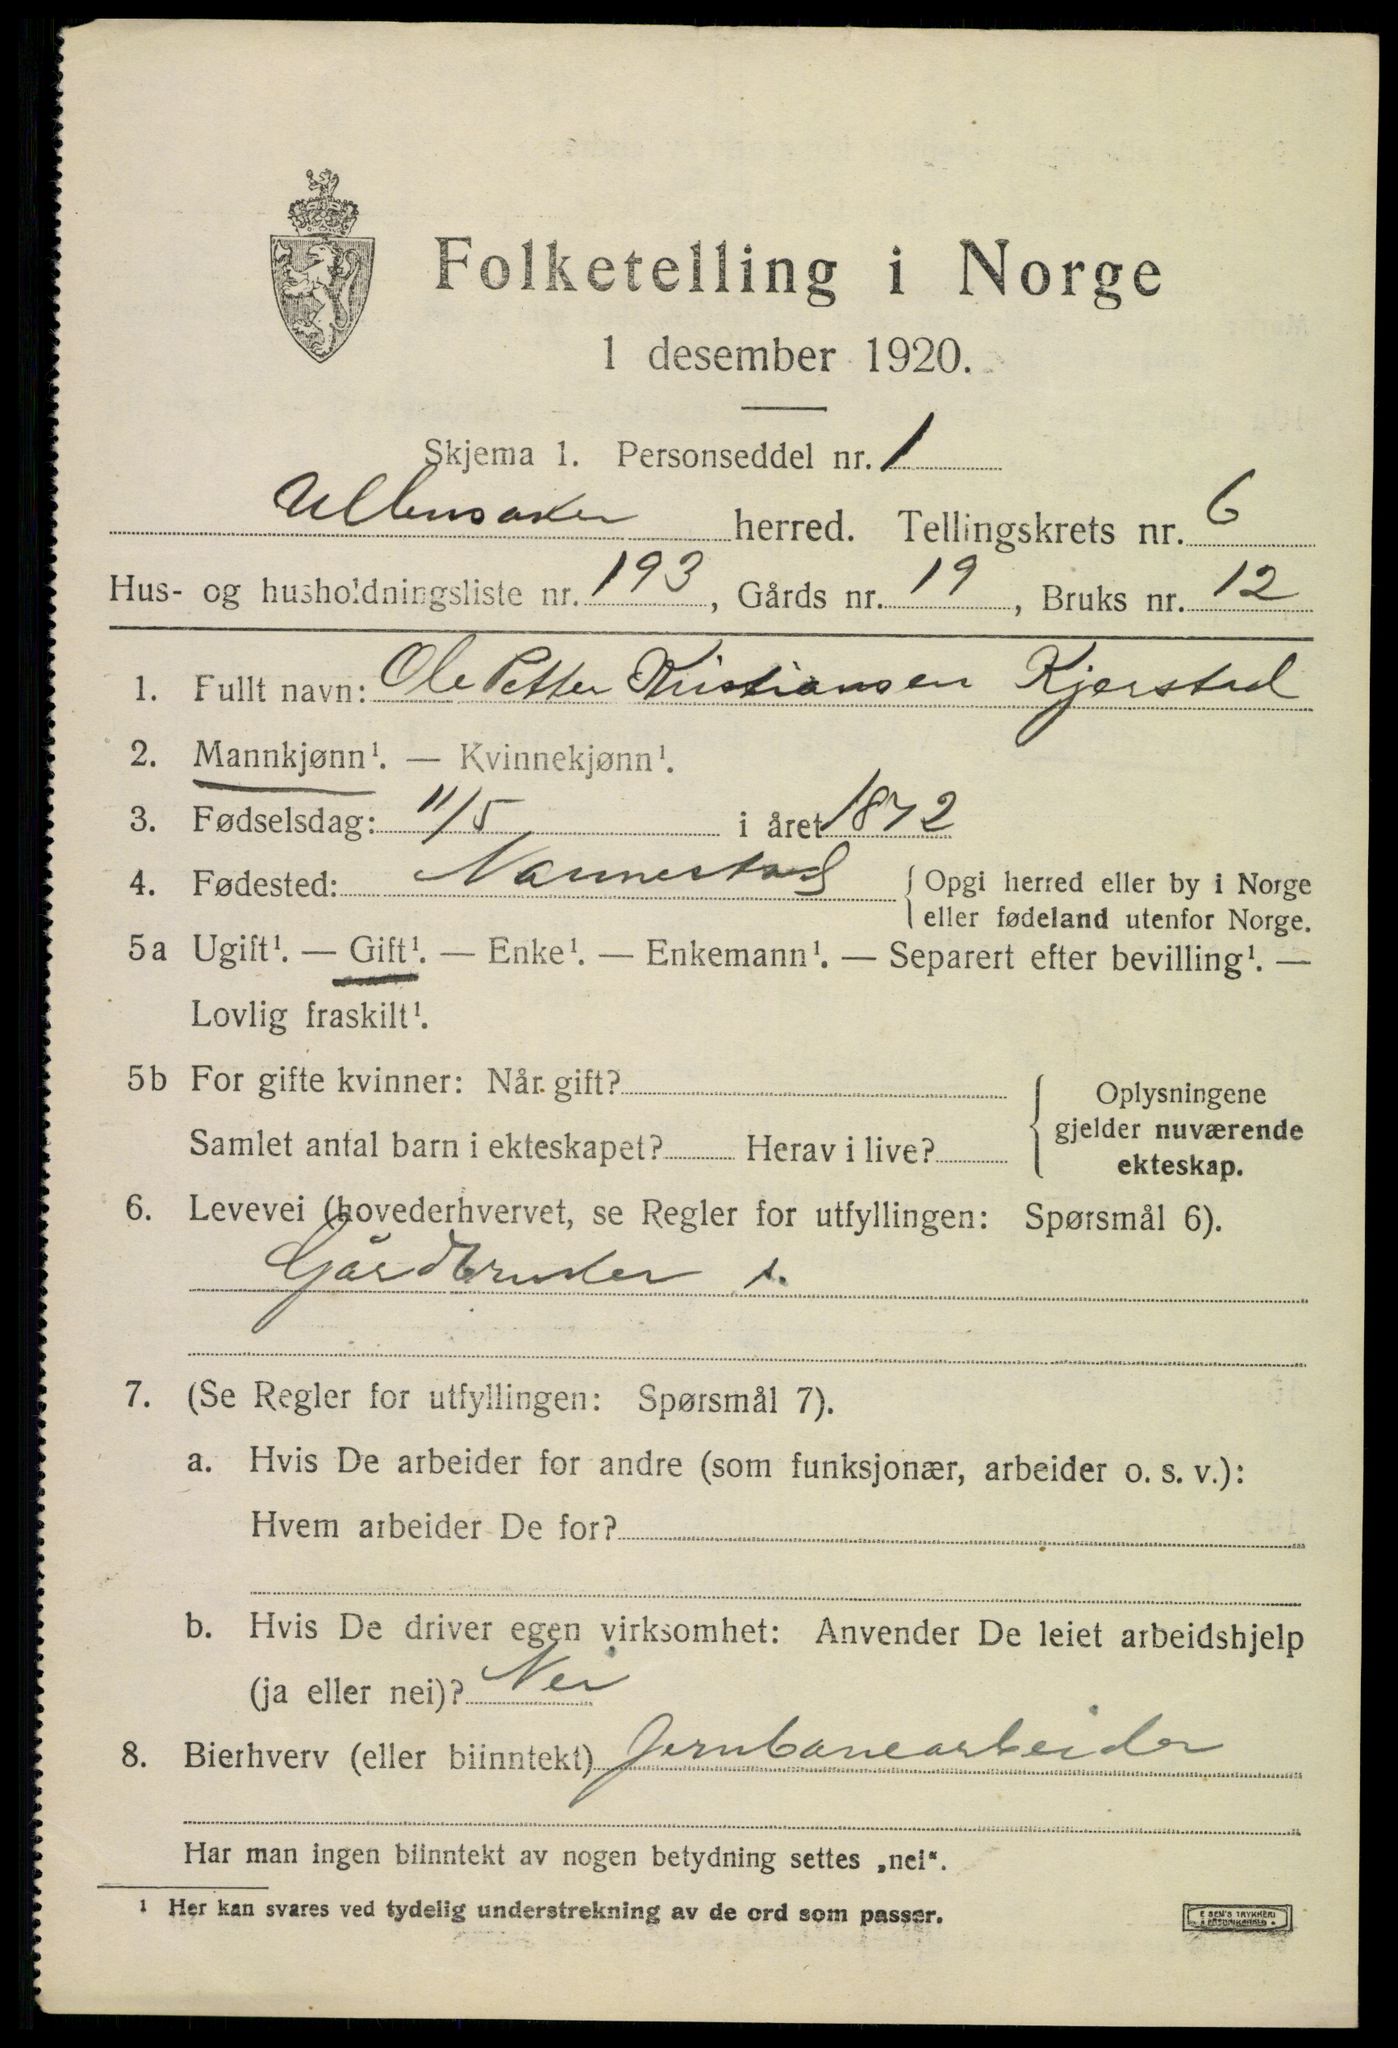 Folketelling i Norge
1 desember 1920.
Skjema 1. Personseddel nr. 1
Ullensaker herred. Tellingskrets nr. 6
Hus- og husholdningsliste nr. 193, Gårds nr. 19, Bruks nr. 12
1. Fullt navn: Ole Petter Kristiansen Kjerstad
2. Mannkjønn¹. — Kvinnekjønn¹.
3. Fødselsdag: 11/5 i året 1872
4. Fødested: Nannestad { Opgi herred eller by i Norge
eller fødeland utenfor Norge.
5a Ugift¹. — Gift¹. — Enke¹. — Enkemann¹. — Separert efter bevilling¹. —
Lovlig fraskilt¹.
5b For gifte kvinner: Når gift? { Oplysningene
gjelder nuværende
Samlet antal barn i ekteskapet? Herav i live?
ekteskap.
6. Levevei (hovederhvervet, se Regler for utfyllingen: Spørsmål 6).
Gårdbruker s.
7. (Se Regler for utfyllingen: Spørsmål 7).
a. Hvis De arbeider for andre (som funksjonær, arbeider o. s. v.):
Hvem arbeider De for?
b. Hvis De driver egen virksomhet: Anvender De leiet arbeidshjelp
(ja eller nei)? Nei
8. Bierhverv (eller biinntekt) Jernbanearbeider
Har man ingen biinntekt av nogen betydning settes „nei“.
1 Her kan svares ved tydelig understrekning av de ord som passer.